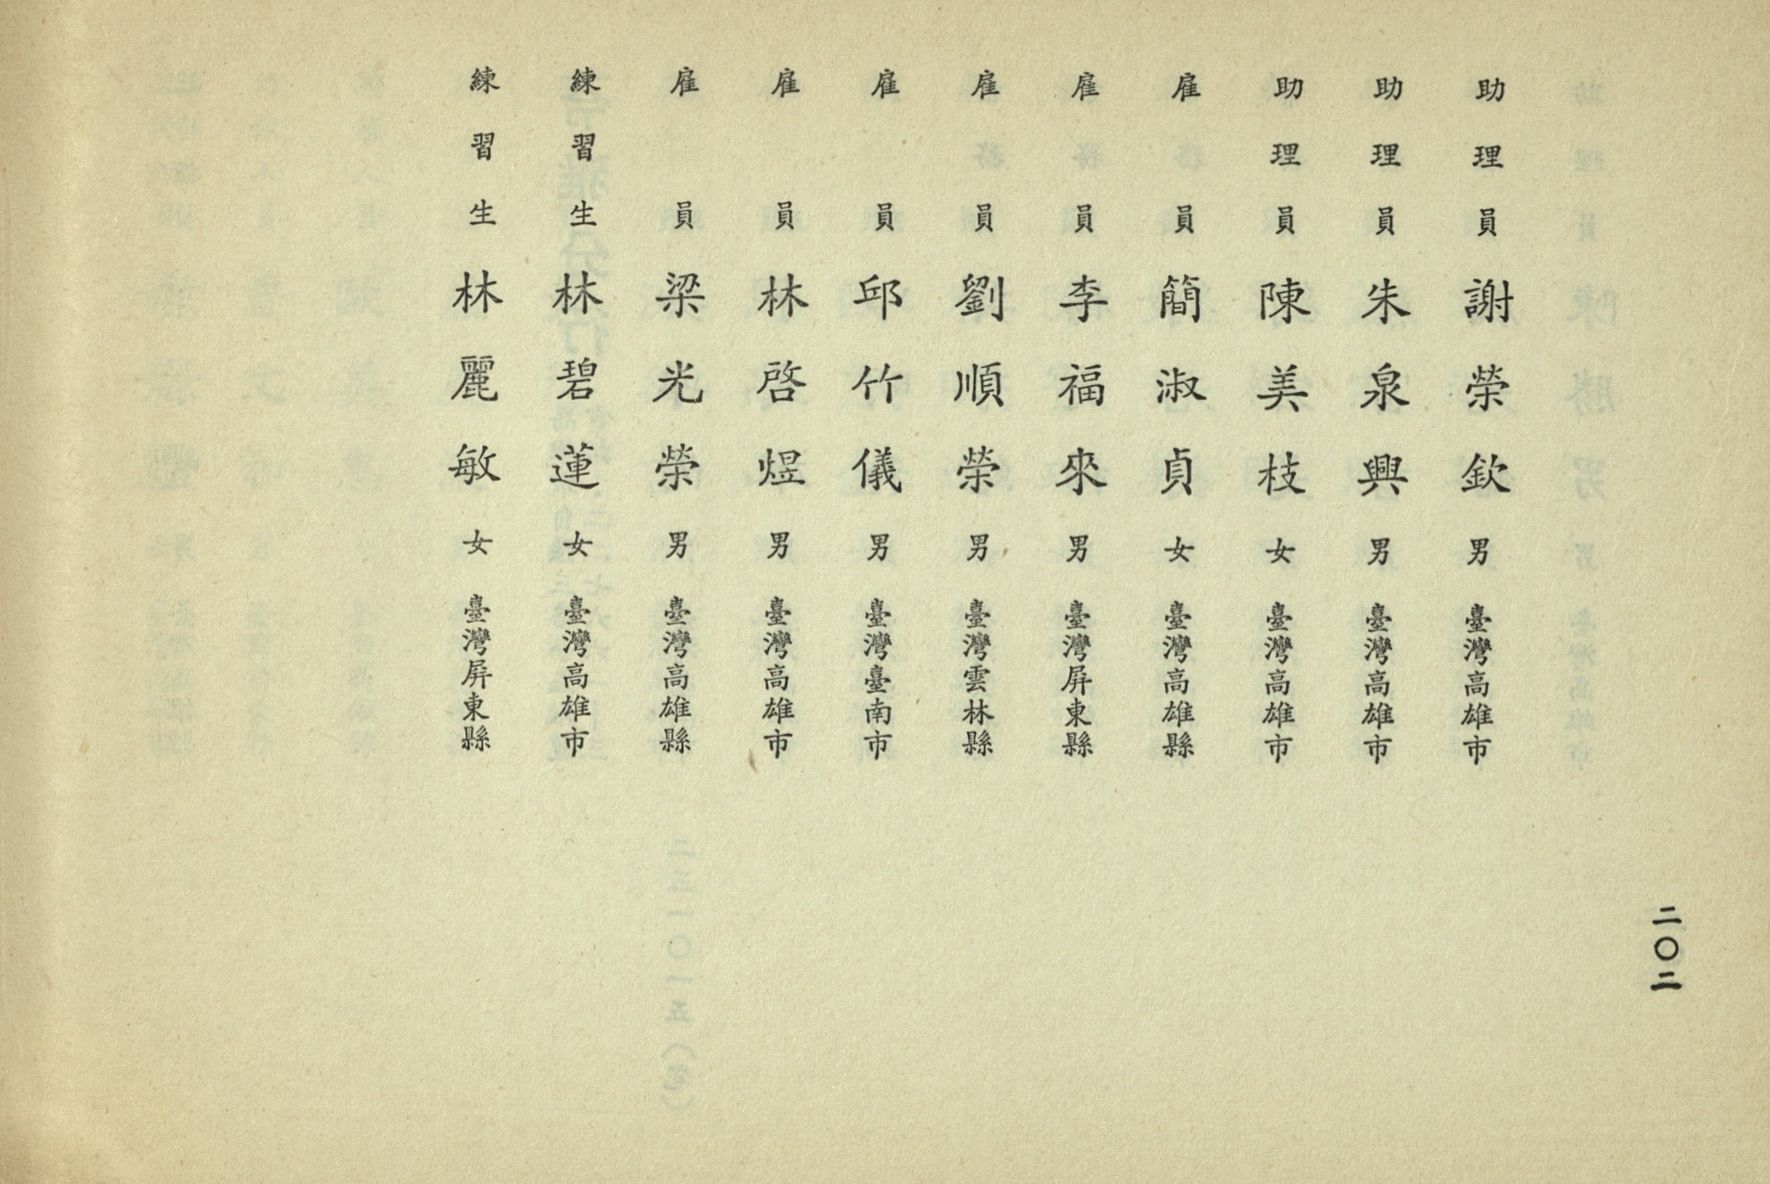 助理員 謝榮欽 男 臺灣高雄市
助理員 朱泉興 男 臺灣高雄市
助理員 陳美枝 女 臺灣高雄市
雇員 簡淑貞 女 臺灣高雄縣
雇員 李福來 男 臺灣屏東縣
雇員 劉順榮 男 臺灣雲林縣
雇員 邱竹儀 男 臺灣臺南市
雇員 林啓煜 男 臺灣高雄市
雇員 梁光榮 男 臺灣高雄縣
練習生 林碧蓮 女 臺灣高雄市
練習生 林麗敏 女 臺灣屏東縣
二〇二